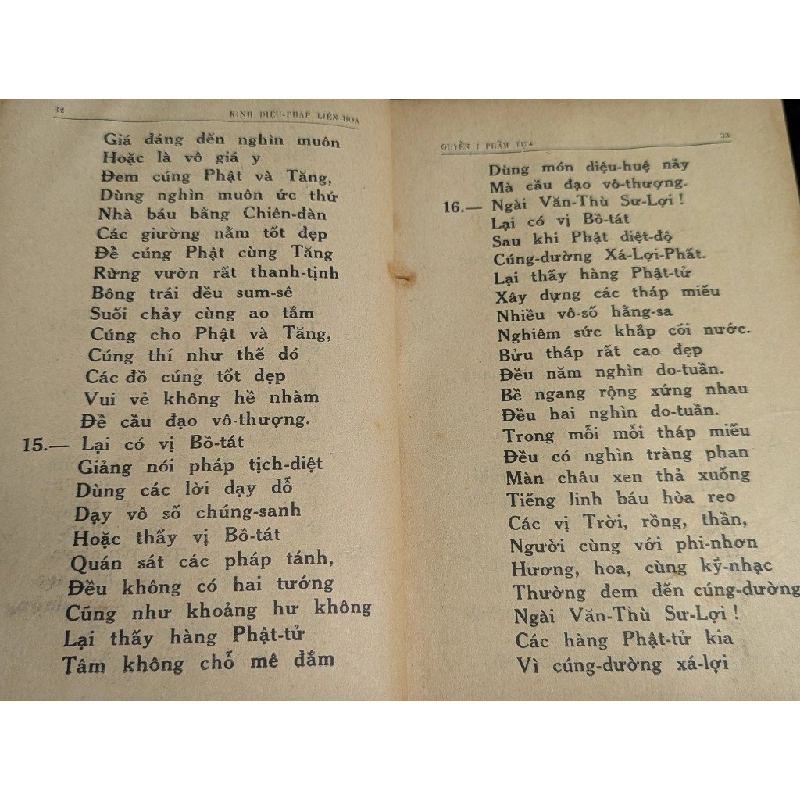 32
KINH DIỆU-PHÁP LIÊN-HOA
Giá đáng đến nghìn muôn
Hoặc là vô giá y
Đem cúng Phật và Tăng,
Dùng nghìn muôn ức thứ
Nhà báu bằng Chiên-đàn
Các giường nằm tốt đẹp
Đề cúng Phật cùng Tăng
Rừng vườn rất thanh-tịnh
Bông trái đều sum-sê
Suối chảy cùng ao tắm
Cúng cho Phật và Tăng,
Cúng thí như thế đó
Các đồ cúng tốt đẹp
Vui vẻ không hề nhàm
Đề cầu đạo vô-thượng.
15.— Lại có vị Bồ-tát
Giảng nói pháp tịch-diệt
Dùng các lời dạy dỗ
Dạy vô số chúng-sanh
Hoặc thấy vị Bồ-tát
Quán sát các pháp tánh,
Đều không có hai tướng
Cũng như khoảng hư không
Lại thấy hàng Phật-tử
Tâm không chỗ mê đắm
QUYỀN I PHẨM TỰA
33
Dùng món diệu-huệ này
Mà cầu đạo vô-thượng.
16.— Ngài Văn-Thù Sư-Lợi !
Lại có vị Bồ-tát
Sau khi Phật diệt-độ
Cúng-dường Xá-Lợi-Phất.
Lại thấy hàng Phật-tử
Xây dựng các tháp miếu
Nhiều vô-số hằng-sa
Nghiêm sức khắp cõi nước.
Bửu tháp rất cao đẹp
Đều năm nghìn do-tuần.
Bề ngang rộng xứng nhau
Đều hai nghìn do-tuần.
Trong mỗi mỗi tháp miếu
Đều có nghìn tràng phan
Màn châu xen thả xuống
Tiếng linh báu hòa reo
Các vị Trời, rồng, thần,
Người cùng với phi-nhơn
Hương, hoa, cùng kỹ-nhạc
Thường đem đến cúng-dường
Ngài Văn-Thù Sư-Lợi !
Các hàng Phật-tử kia
Vì cúng-dường xá-lợi